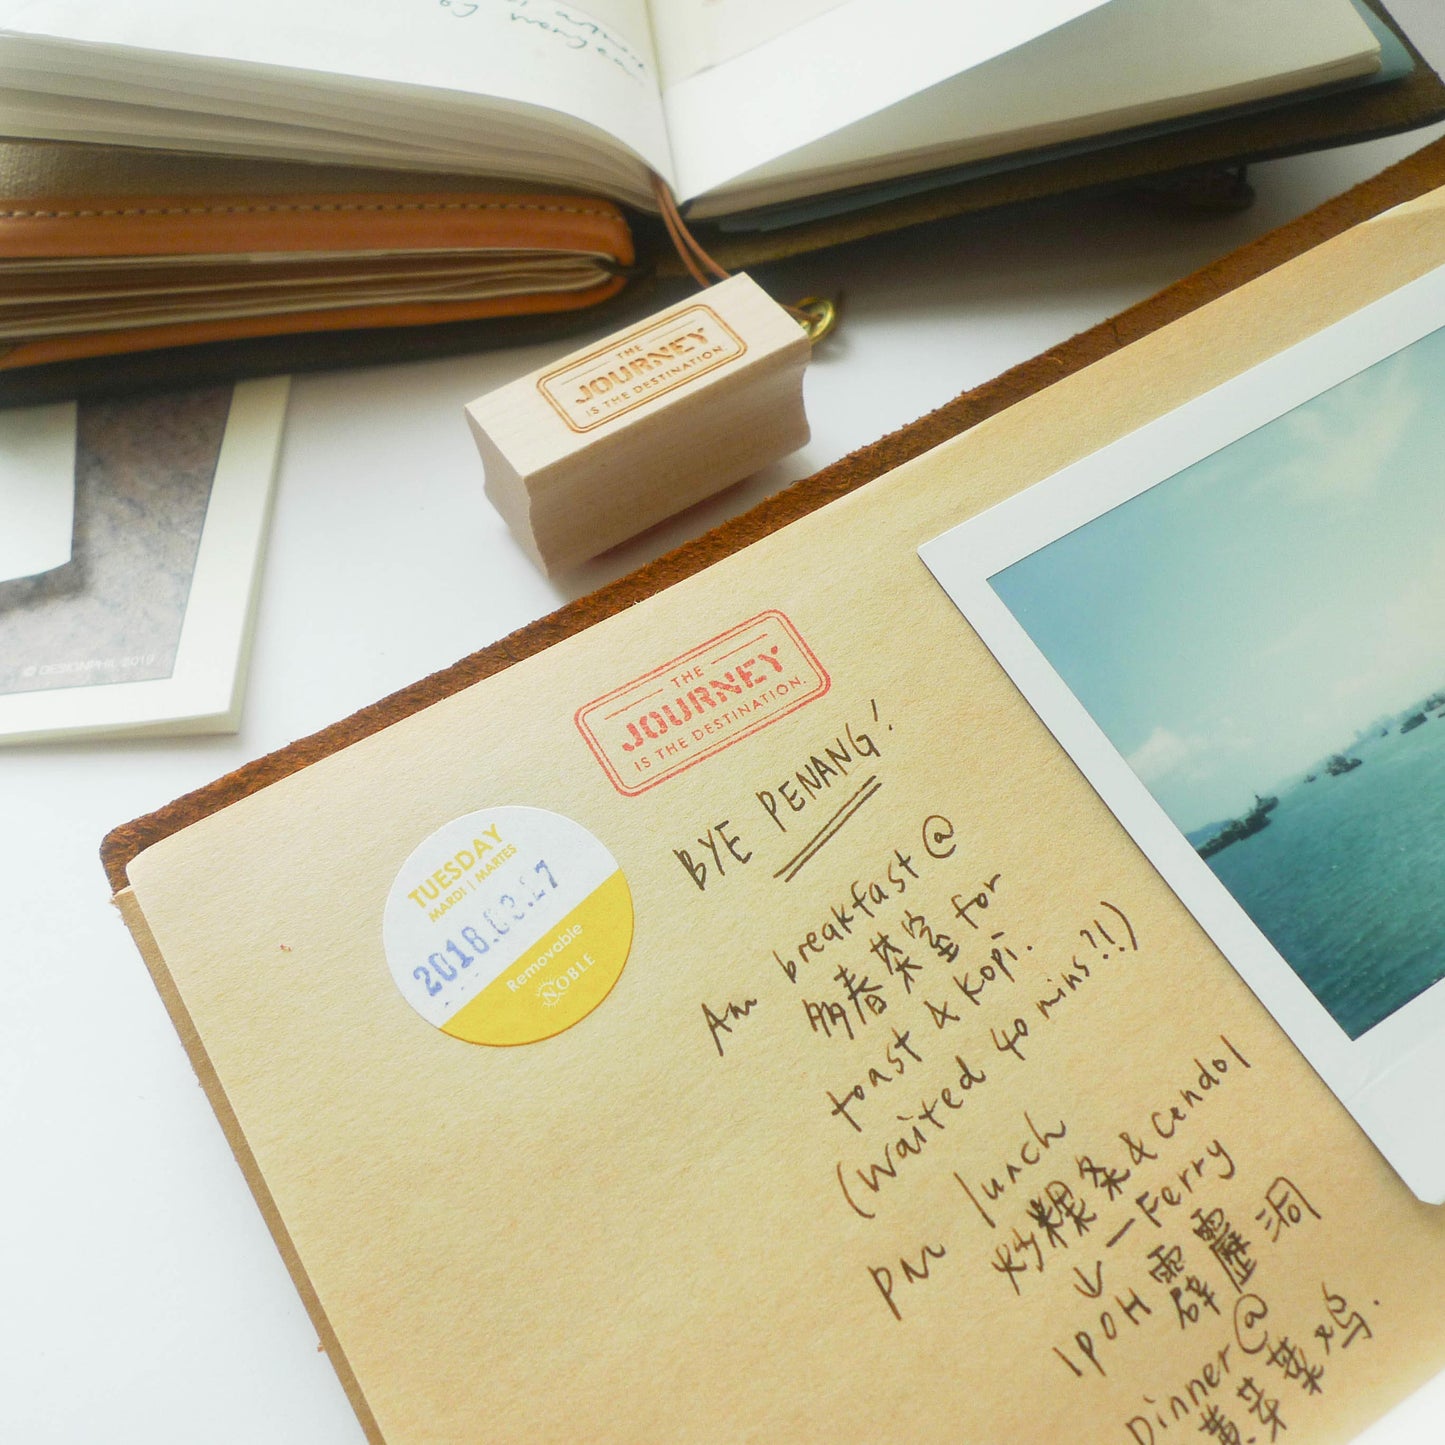 THE
JOURNEY
IS THE DESTINATION.
© DESIGNPHIL 2019
THE
JOURNEY
IS THE DESTINATION.
BYE PENANG!
TUESDAY
MARDI | MARTES
Removable
NOBLE
Am breakfast @
多春茶室 for
toast & kopi.
(Waited 40 mins?!)
PM lunch
炒粿条 & cendol
↓ — Ferry
IPOH 霹靂洞
Dinner @
黄芽菜鸡.